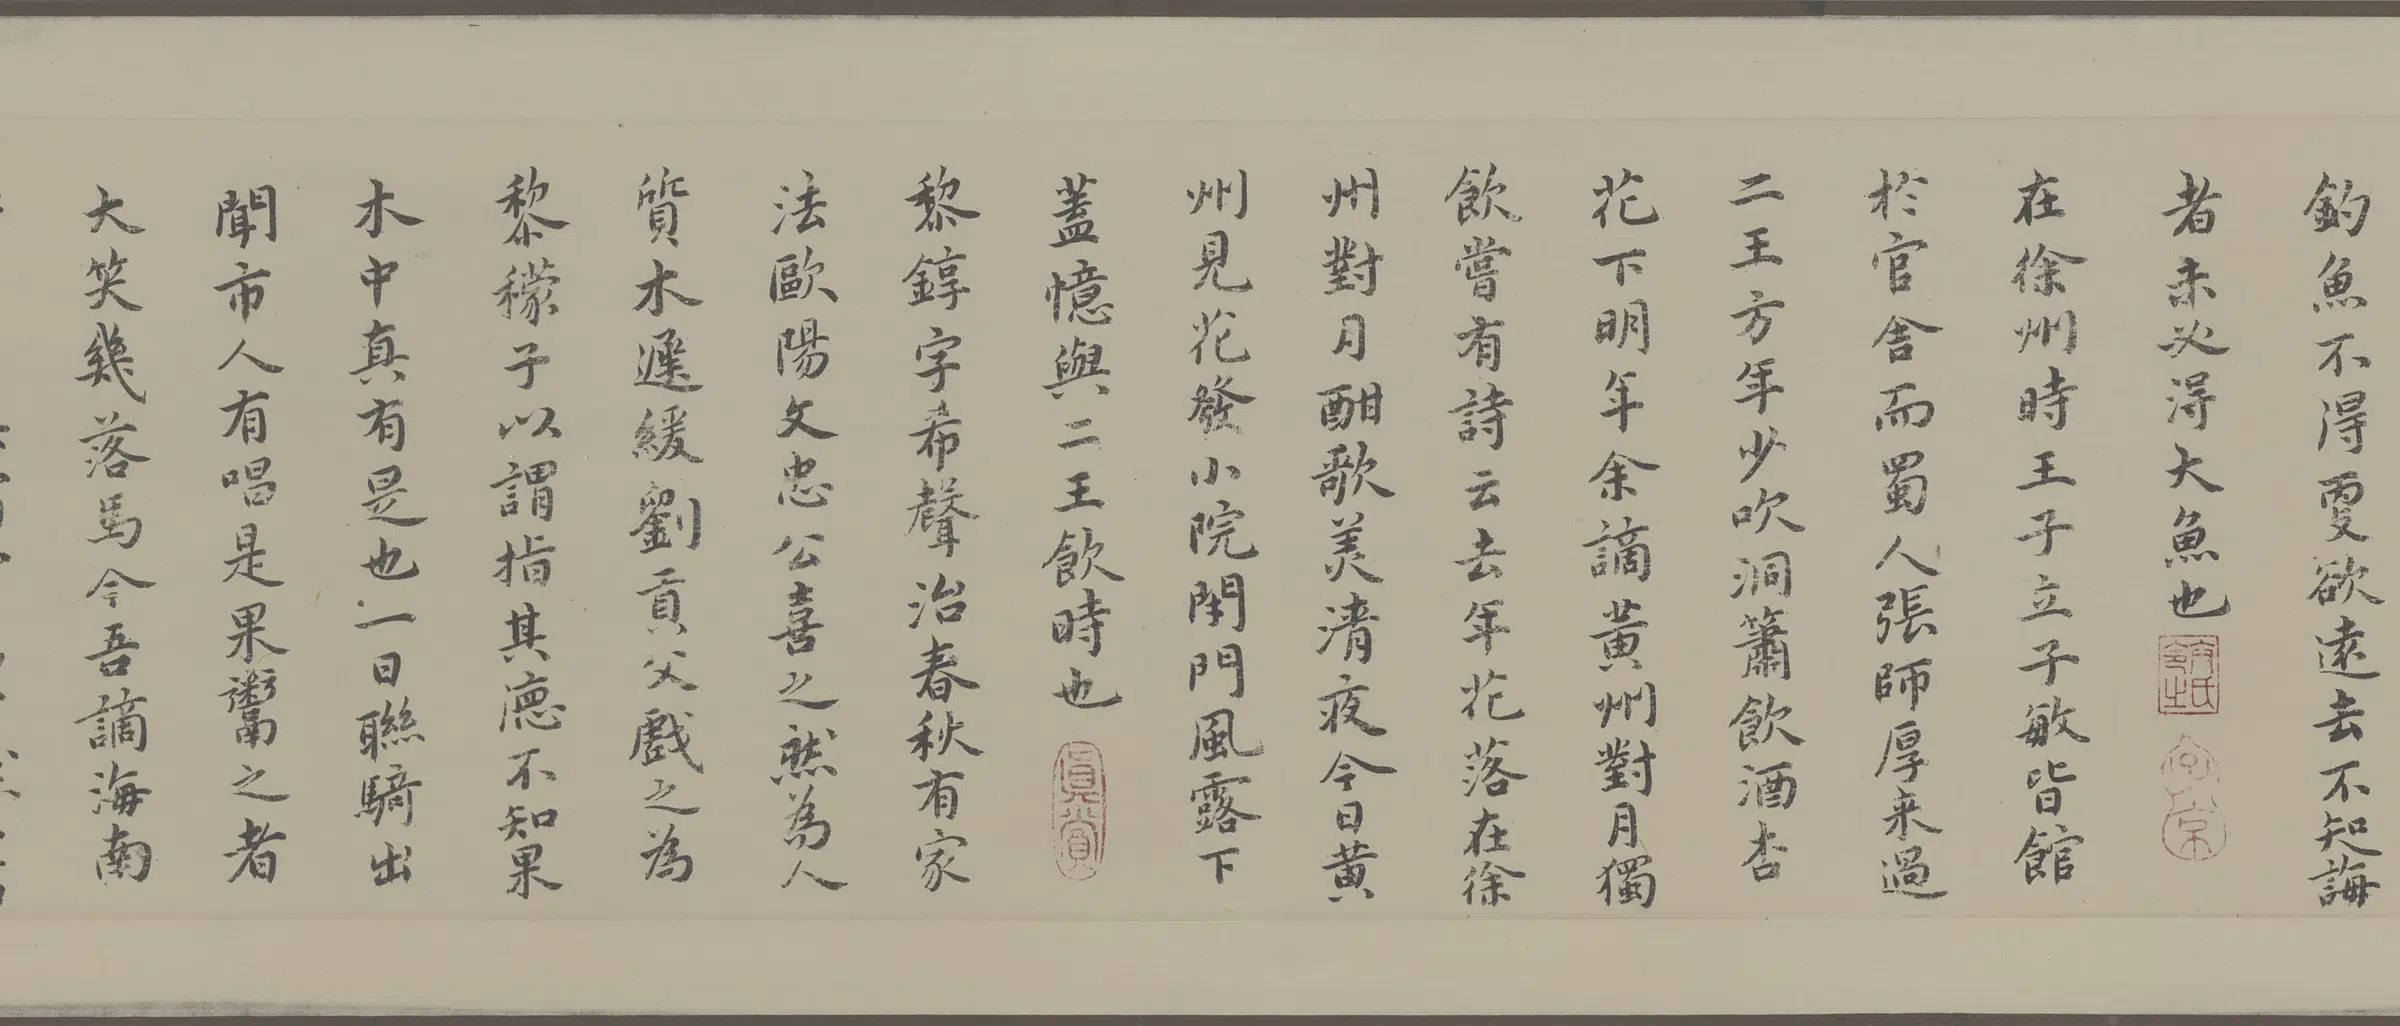 釣魚不得更欲遠去不知誨
者未必得大魚也
在徐州時王子立子敏皆館
於官舍而蜀人張師厚来過
二王方年少吹洞簫飲酒杏
花下明年余謫黄州對月獨
飲嘗有詩云去年花落在徐
州對月酣歌美清夜今日黄
州見花發小院閇門風露下
蓋憶與二王飲時也
真賞
黎錞字希聲治春秋有家
法歐陽文忠公喜之然為人
質木遲緩劉貢父戲之為
黎檬子以謂指其德不知果
木中真有是也一日聯騎出
聞市人有唱是果鬻之者
大笑幾落馬今吾謫海南